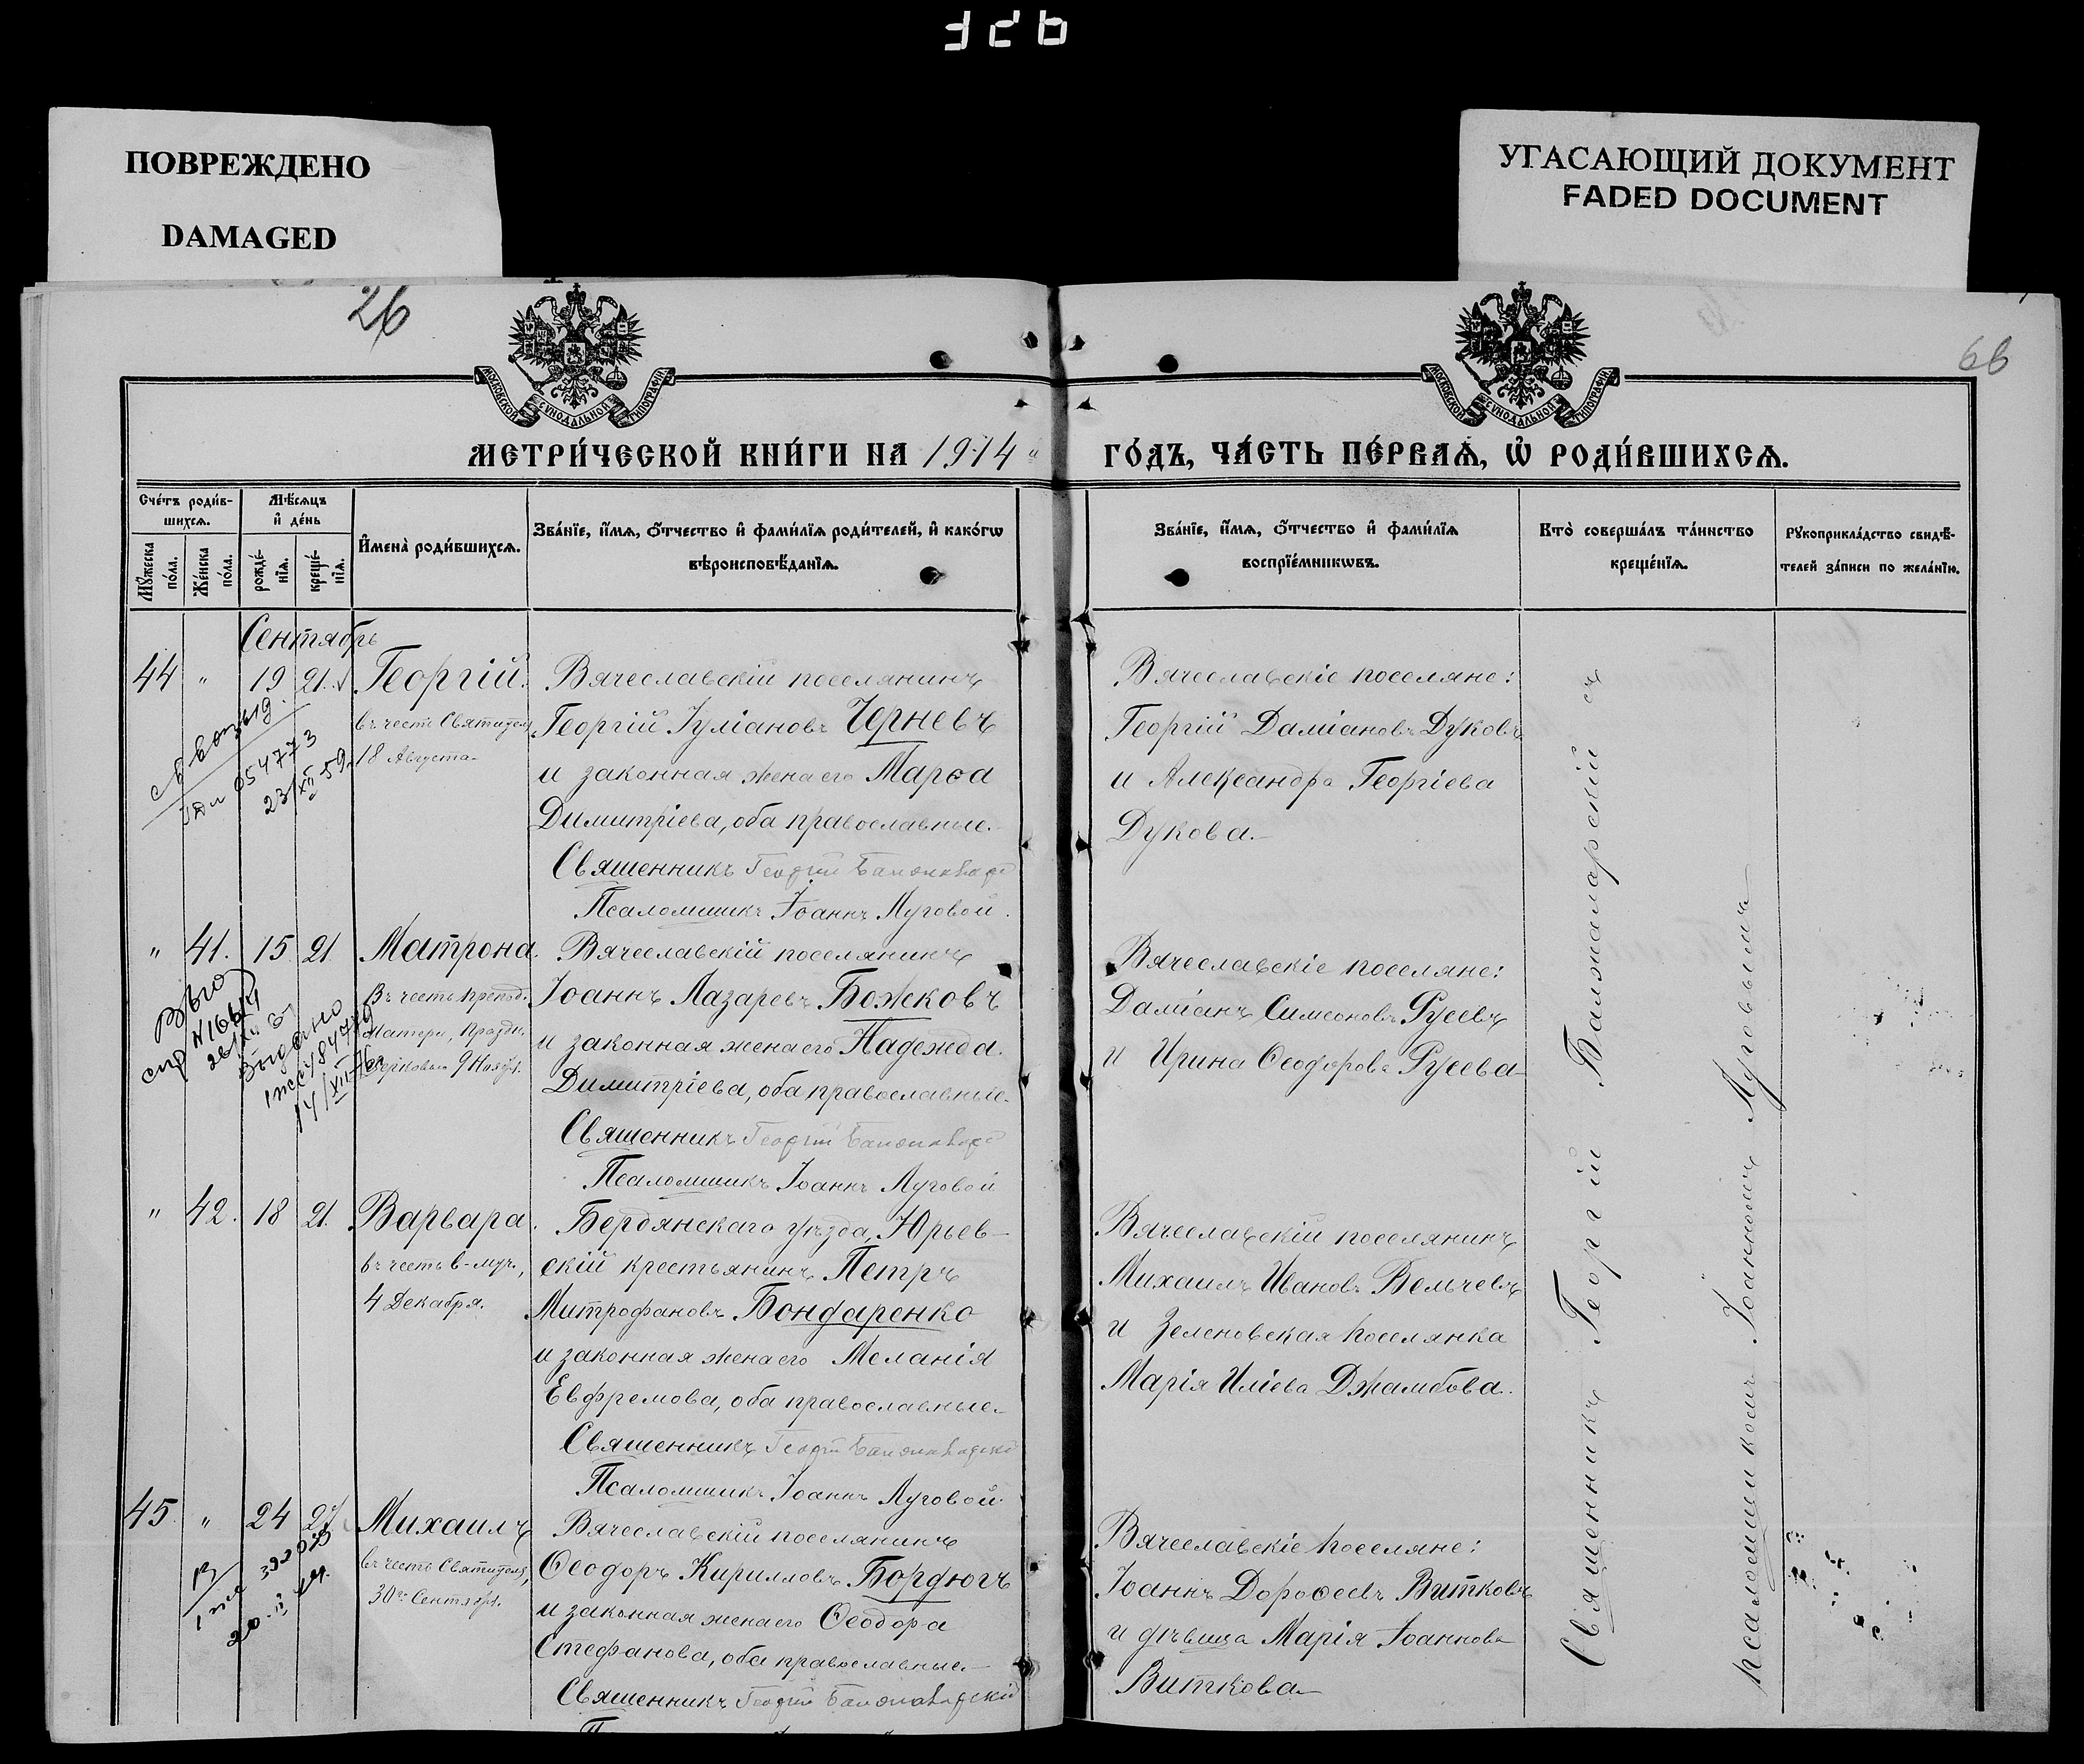 326
ПОВРЕЖДЕНО
DAMAGED
УГАСАЮЩИЙ ДОКУМЕНТ
FADED DOCUMENT
26
66
МОСКОВСКОЙ СѴНОДАЛЬНОЙ ТИПОГРАФІИ
МОСКОВСКОЙ СѴНОДАЛЬНОЙ ТИПОГРАФІИ
МЕТРИ́ЧЕСКОЙ КНИ́ГИ НА 1914
ГО́ДЪ, ЧА́СТЬ ПЕ́РВАѦ, Ѡ҆ РОДИ́ВШИХСѦ.
Сче́тъ роди́в-
шихсѧ.
Мѣ́сѧцъ
и҆ де́нь
Мꙋ́жеска по́ла.
Же́нска по́ла.
рожде́-нїѧ.
креще́-нїѧ.
И҆мена̀ роди́вшихсѧ.
Зва́нїе, и҆́мѧ, ѻ҆́тчество и҆ фами́лїѧ роди́телей, и҆ како́гѡ
вѣроисповѣ́данїѧ.
Зва́нїе, и҆́мѧ, ѻ҆́тчество и҆ фами́лїѧ
воспрїе́мникѡвъ.
Кто̀ соверша́лъ та́инство
креще́нїѧ.
Рꙋкоприкла́дство свидѣ́-
телей за́писи по жела́нїю.
Сентябрь
44 " 19 21 Георгій.
въ честь Святителя,
18 Августа
054773
23/XII-59
Вячеславскій поселянинъ
Георгій Іуліановъ Черневъ
и законная жена его Марѳа
Димитріева, оба православные.
Священникъ Георгій
Псаломщикъ Іоаннъ Луговой.
Вячеславскіе поселяне:
Георгій Даміановъ Дуковъ
и Александра Георгіева
Дукова.
" 41. 15 21 Матрона.
Въ честь препод.
Матери, праздн.
9 Нояб.
Выдано
Вячеславскій поселянинъ
Іоаннъ Лазаревъ Божковъ
и законная жена его Надежда
Димитріева, оба православные.
Священникъ Георгій
Псаломщикъ Іоаннъ Луговой
Вячеславскіе поселяне:
Даміанъ Симеоновъ Русевъ
и Ирина Ѳеодорова Русева
" 42. 18 21. Варвара.
въ честь в-муч.,
4 Декабря.
Бердянскаго уѣзда, Юрьев-
скій крестьянинъ Петръ
Митрофановъ Бондаренко
и законная жена его Меланія
Евфремова, оба православные.
Священникъ Георгій
Псаломщикъ Іоаннъ Луговой
Вячеславскій поселянинъ
Михаилъ Ивановъ Вельчевъ
и Зеленовская поселянка
Марія Иліева Джамбова.
45 " 24 27 Михаилъ
въ честь Святителя,
30го Сентябр.
Вячеславскій поселянинъ
Ѳеодоръ Кирилловъ Бордюгъ
и законная жена его Ѳеодора
Стефанова, оба православные.
Священникъ Георгій
Вячеславскіе поселяне:
Іоаннъ Дороѳеевъ Витковъ
и дѣвица Марія Іоаннова
Виткова
Священникъ Георгій Балжаларскій съ
псаломщикомъ Іоанномъ Луговымъ